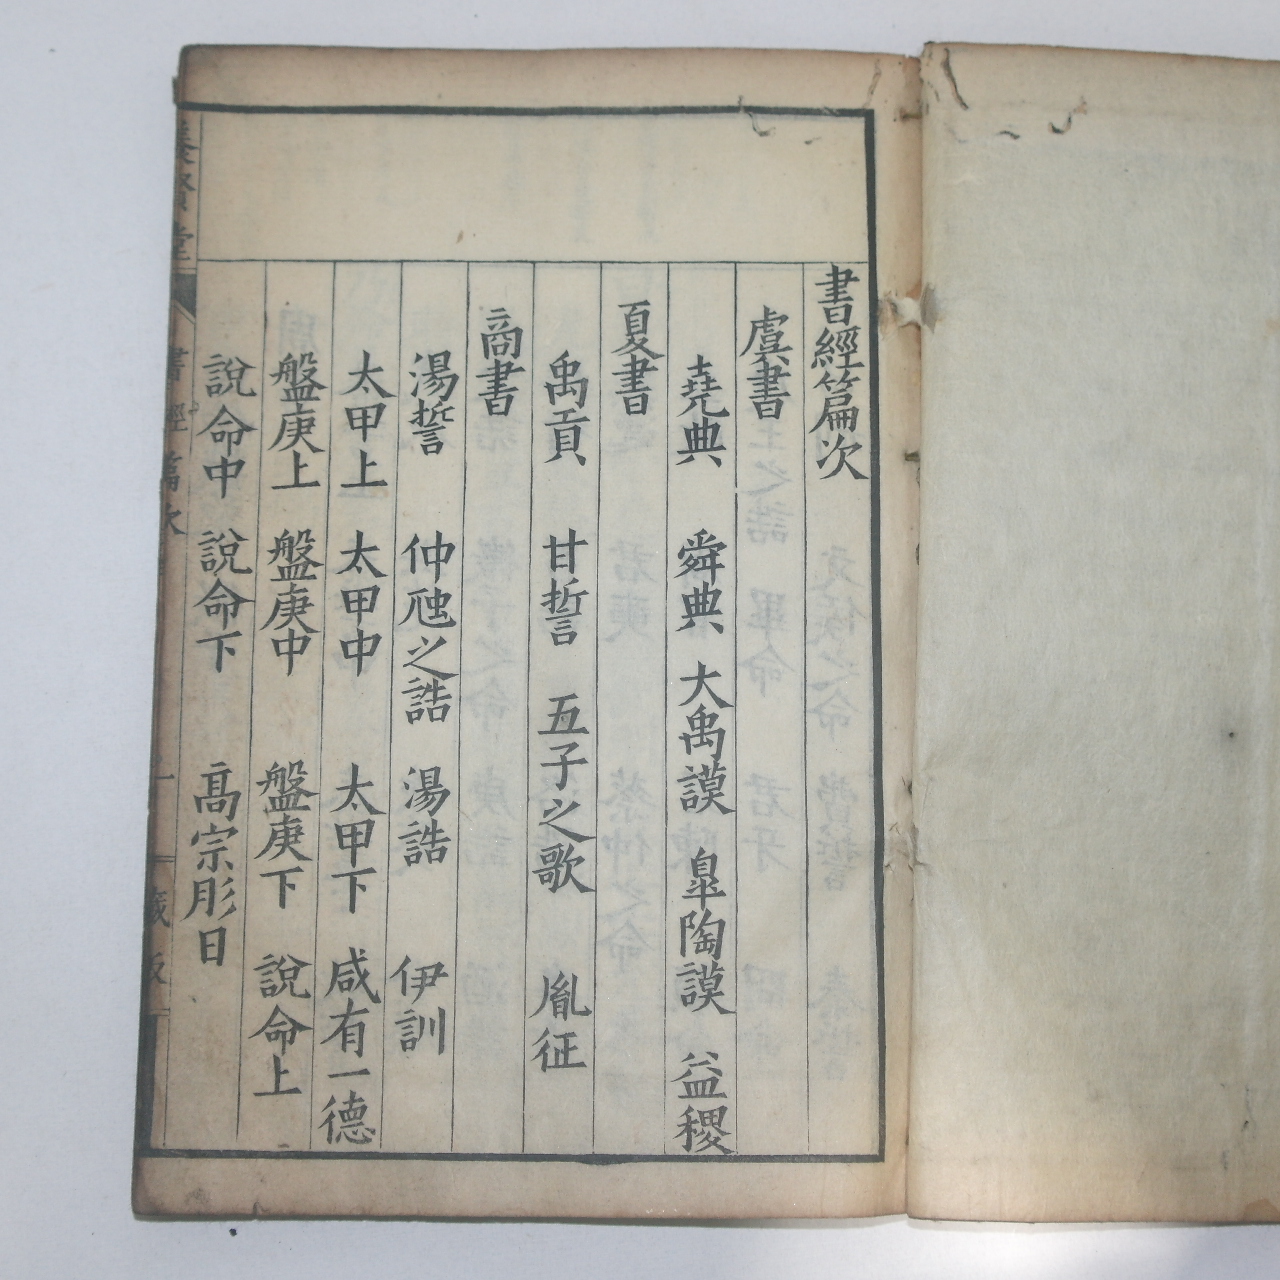 書經篇次
虞書
堯典 舜典 大禹謨 皐陶謨 益稷
夏書
禹貢 甘誓 五子之歌 胤征
商書
湯誓 仲虺之誥 湯誥 伊訓
太甲上 太甲中 太甲下 咸有一德
盤庚上 盤庚中 盤庚下 說命上
說命中 說命下 高宗肜日
養賢堂 書經篇次 一 藏版